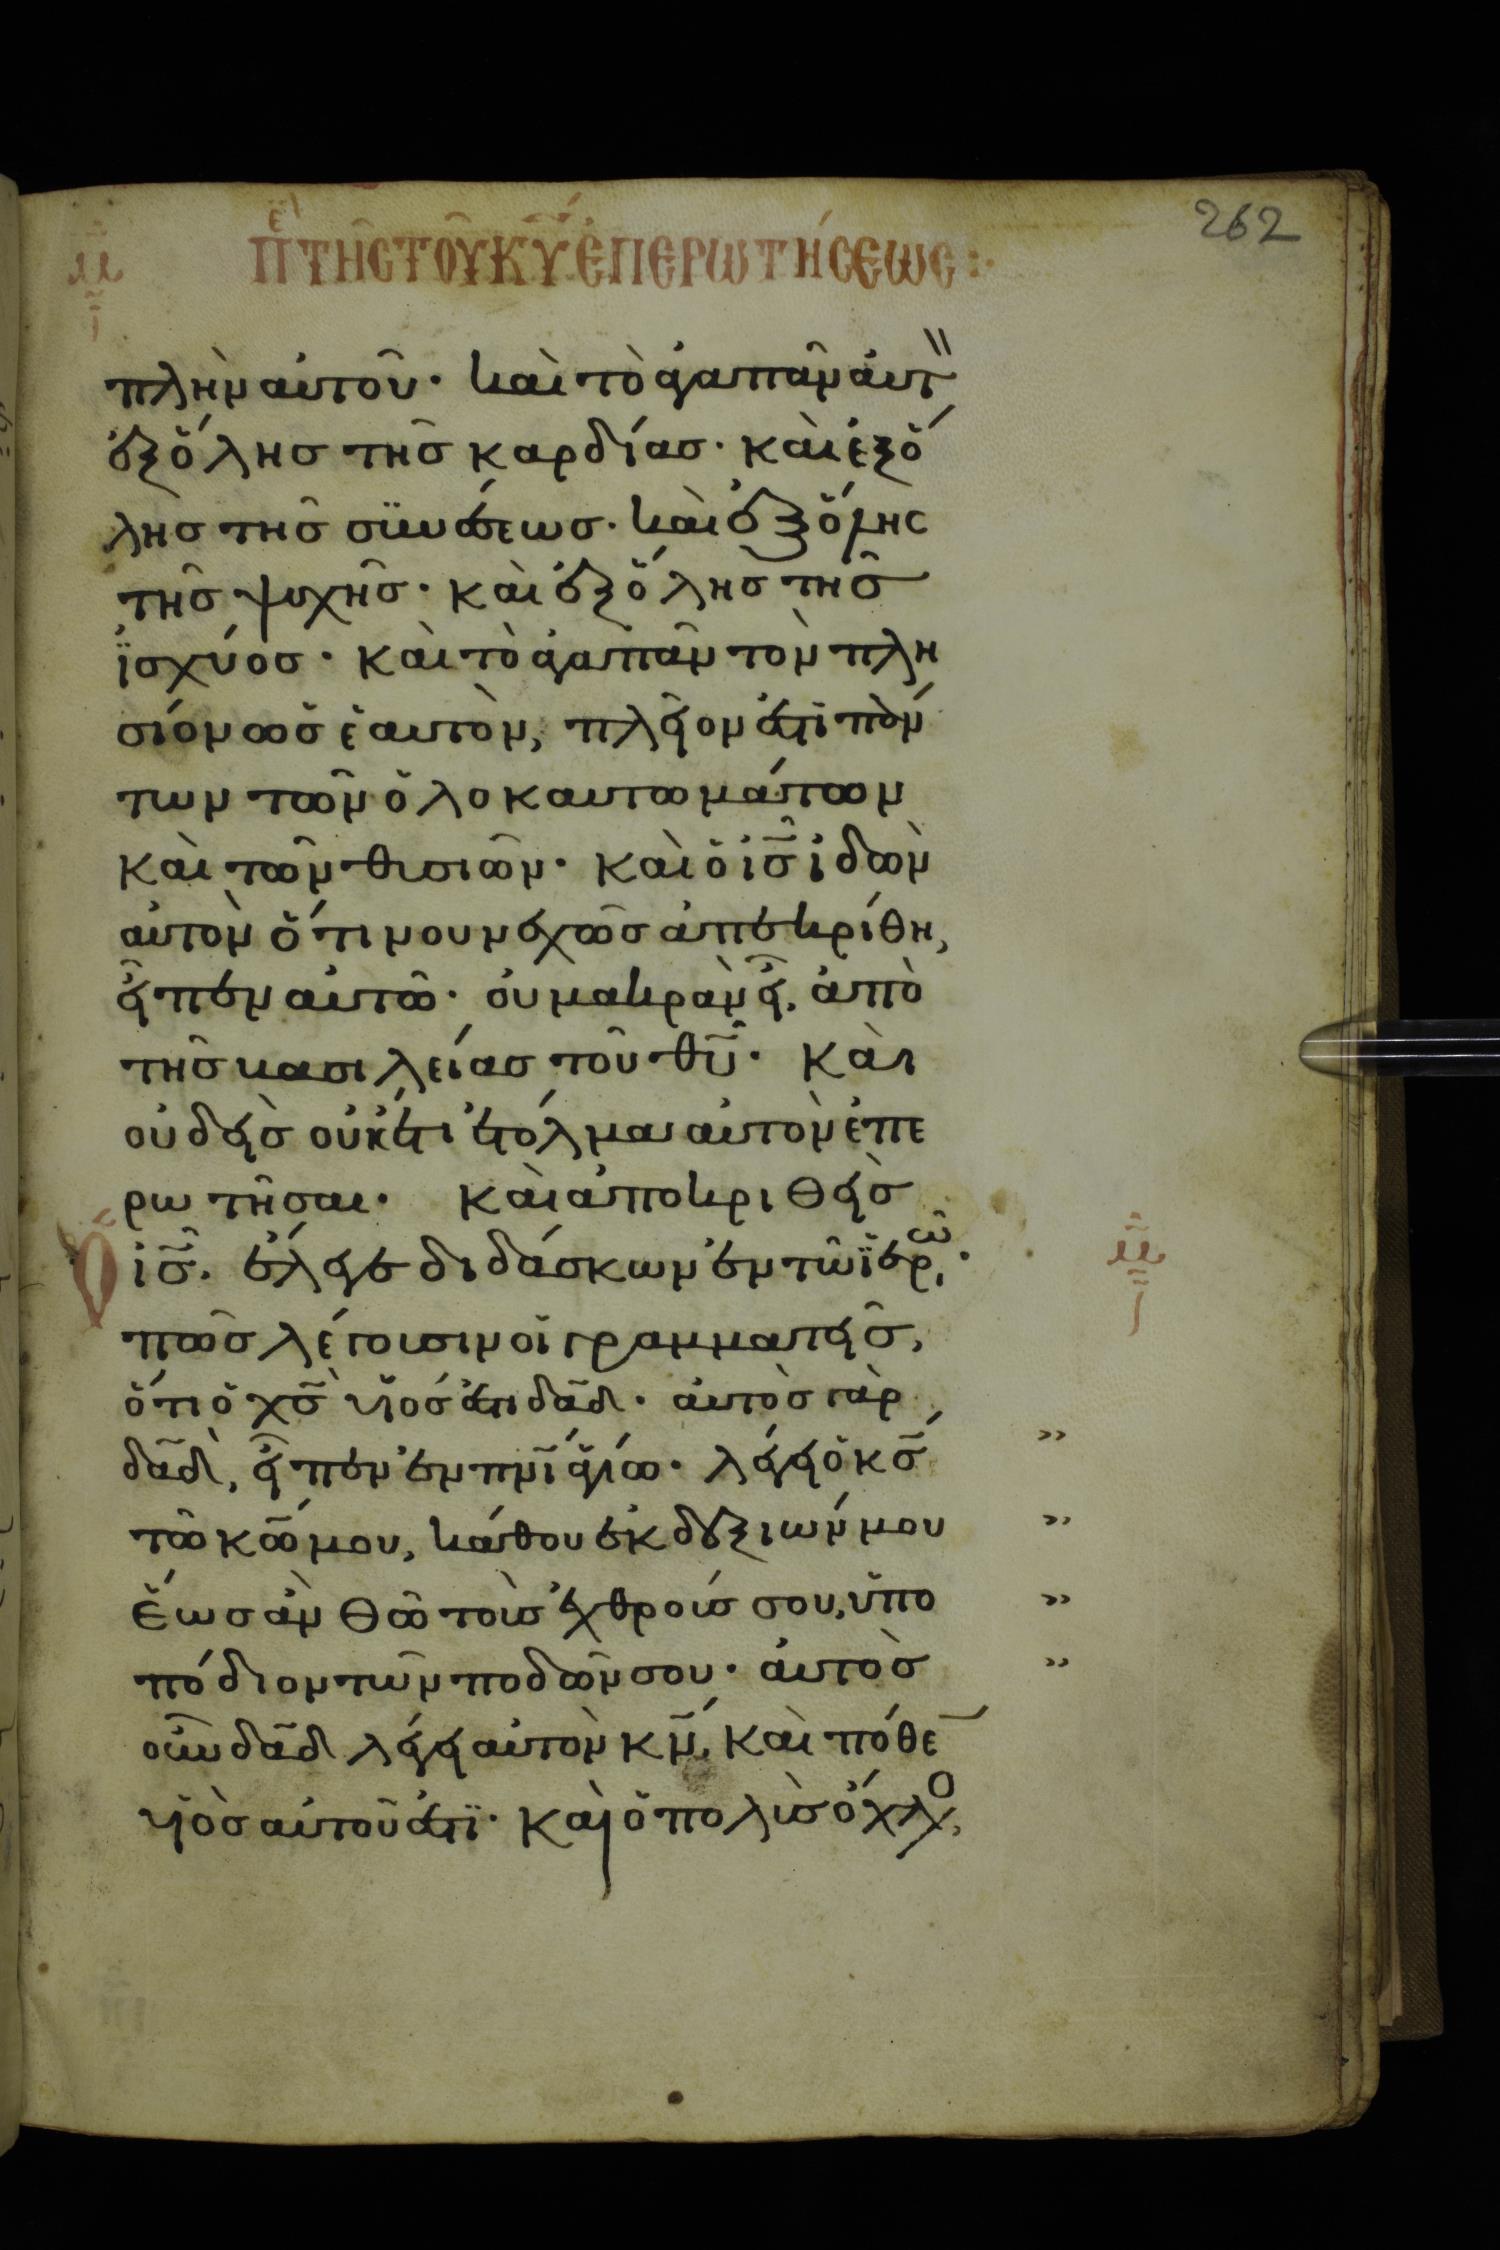 262
π̅ε̅ τῆς τοῦ κ̅υ̅ ἐπερωτήσεως :·
πλὴν αὐτοῦ· καὶ τὸ ἀγαπᾶν αὐτ
ἐξ ὅλης τῆς καρδίας· καὶ ἐξ ὅ
λης τῆς συνέσεως· καὶ ἐξ ὅλης
τῆς ψυχῆς· καὶ ἐξ ὅλης τῆς
ἰσχύος· καὶ τὸ ἀγαπᾶν τὸν πλη
σίον ὡς ἑαυτὸν, πλεῖον ἐστὶ πάν
των τῶν ὁλοκαυτωμάτων
καὶ τῶν θυσιῶν· καὶ ὁ ι̅ς̅ ἰδὼν
αὐτὸν ὅτι νουνεχῶς ἀπεκρίθη,
εἶπεν αὐτῶ· οὐ μακρὰν εἶ, ἀπὸ
τῆς βασιλείας τοῦ θ̅υ̅· καὶ
οὐδεὶς οὐκέτι ἐτόλμα αὐτὸν ἐπε
ρωτῆσαι· καὶ ἀποκριθεὶς
ὁ ι̅ς̅. ἔλεγε διδάσκων ἐν τῶ ἱερῶ·
πῶς λέγουσιν οἱ γραμματεῖς,
ὅτι ὁ χ̅ς̅ υἱός ἐστι δ̅α̅δ̅· αὐτὸς γὰρ
δ̅α̅δ̅, εἶπεν ἐν π̅ν̅ι̅ ἁγίω· λέγει ὁ κ̅ς̅
τῶ κ̅ω̅ μου, κάθου ἐκ δεξιῶν μου
ἕως ἂν θῶ τοὺς ἐχθρούς σου, ὑπο
πόδιον τῶν ποδῶν σου· αὐτὸς
οὖν δ̅α̅δ̅ λέγει αὐτὸν κ̅ν̅, καὶ πόθε̅
υἱὸς αὐτοῦ ἐστι· καὶ ὁ πολὺς ὄχλο,